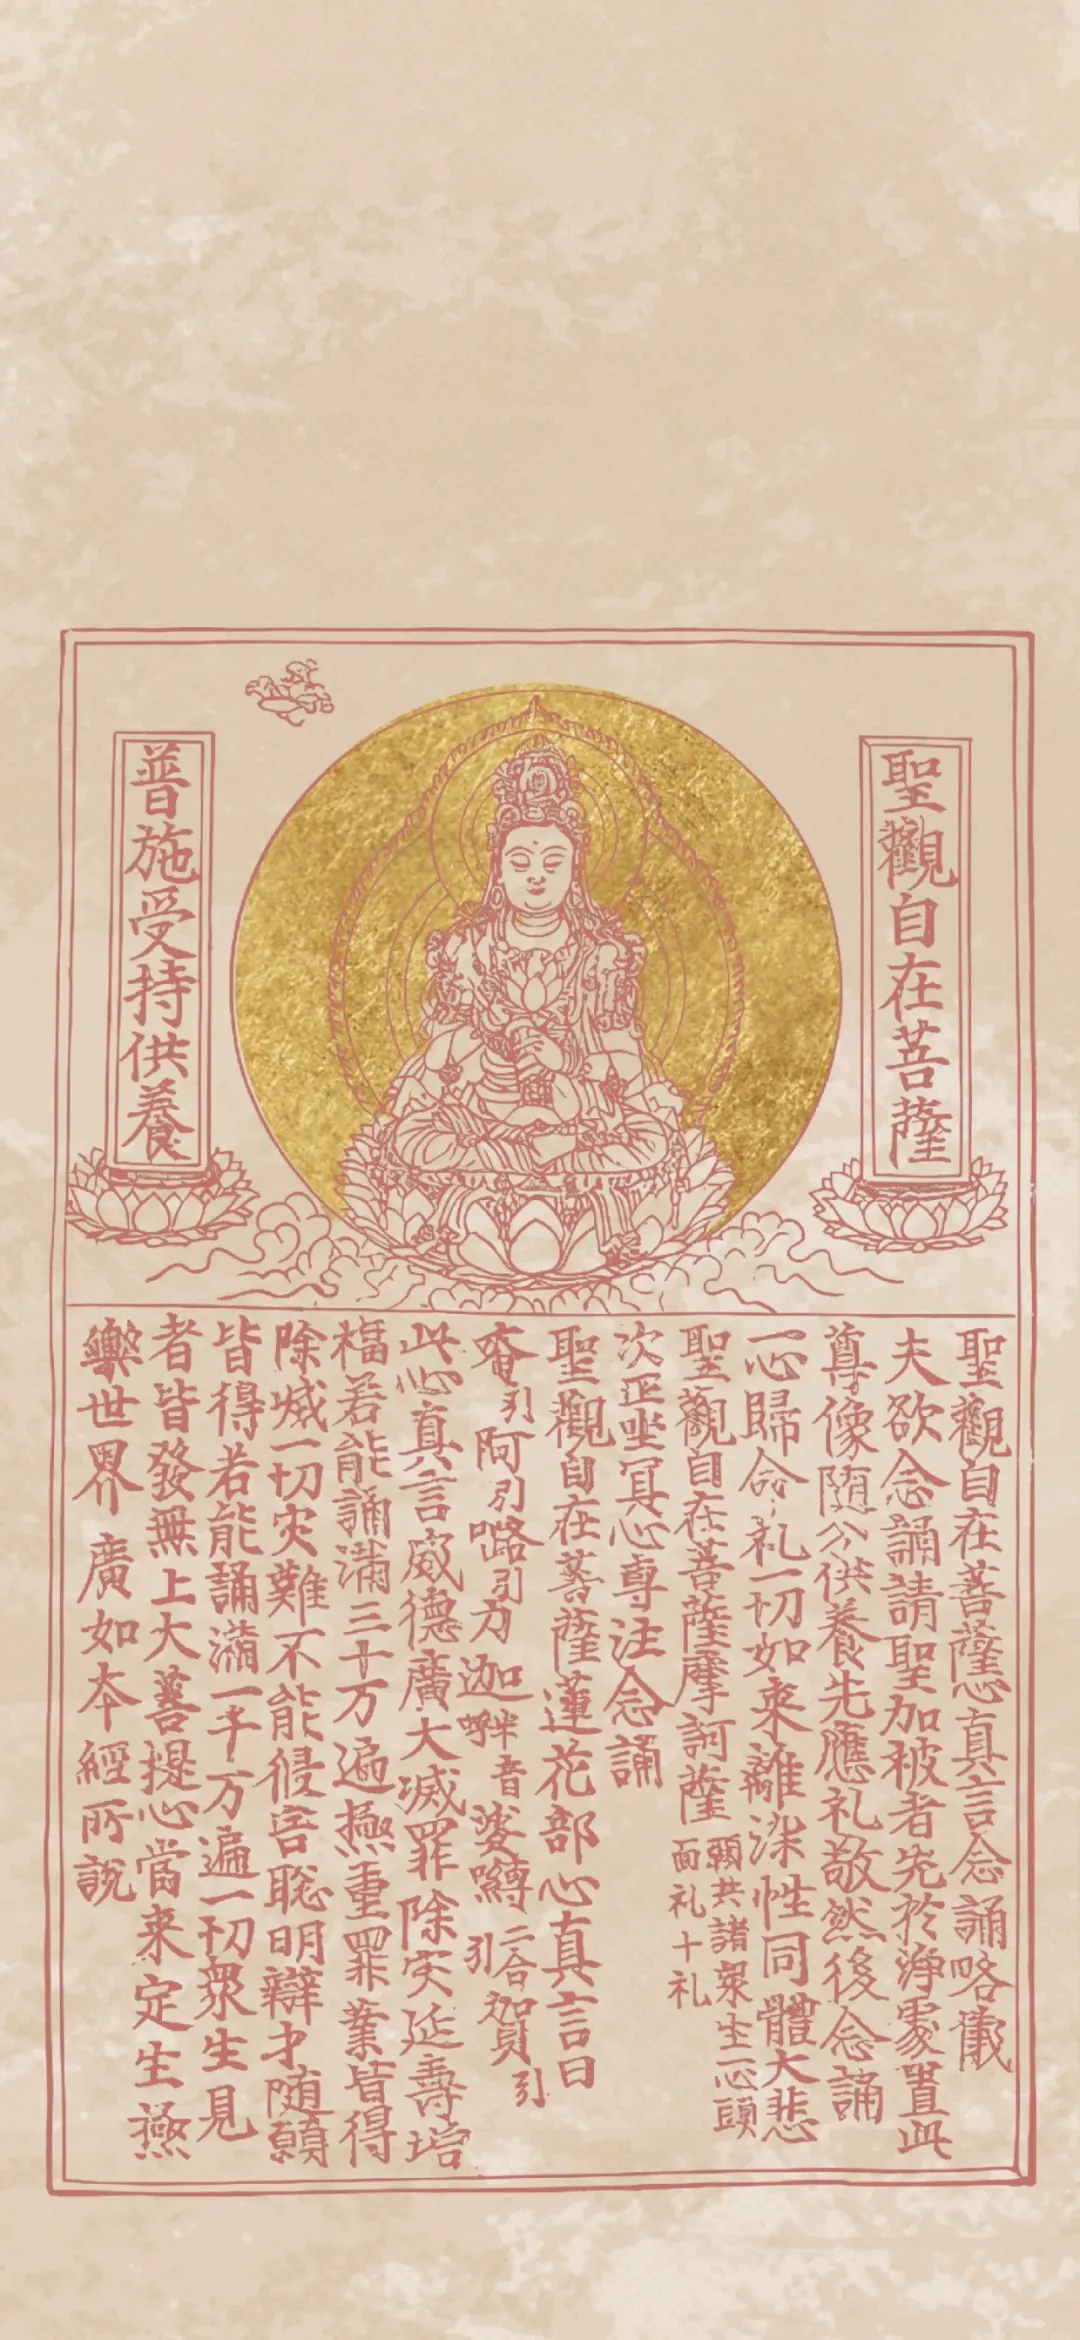 聖觀自在菩薩
普施受持供養
聖觀自在菩薩心真言念誦略儀
夫欲念誦請聖加被者先於淨處置此
尊像随分供養先應礼敬然後念誦
一心歸命礼一切如来離染性同體大悲
聖觀自在菩薩摩訶薩 願共諸衆生一心頭
面礼十礼
次正坐冥心專注念誦
聖觀自在菩薩蓮花部心真言曰
唵引阿引嚕引力迦半音娑嚩二合引賀引
此心真言威德廣大滅罪除灾延壽增
福若能誦滿三十万遍極重罪業皆得
除滅一切灾難不能侵害聡明辯才随願
皆得若能誦滿一千万遍一切衆生見
者皆發無上大菩提心當来定生極
樂世界廣如本經所說